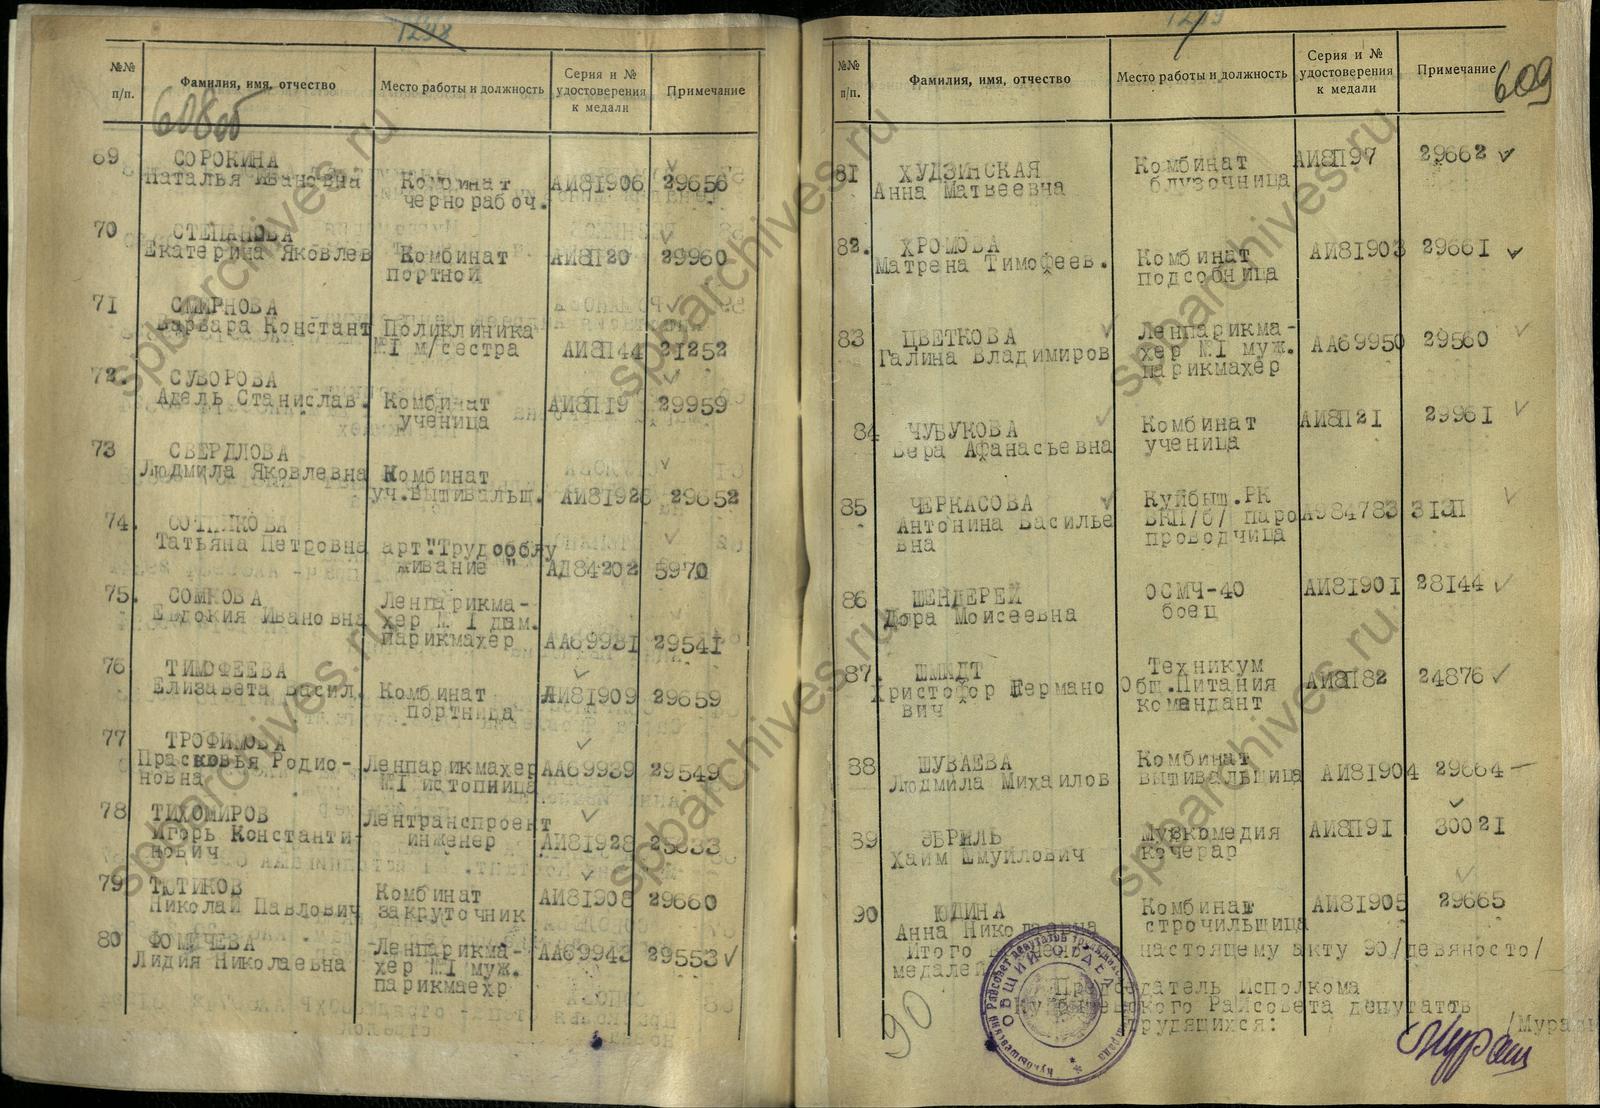 1248
№№ п/п. Фамилия, имя, отчество Место работы и должность Серия и № удостоверения к медали Примечание
608об
69 СОРОКИНА
Наталья Ивановна Комбинат АИ81906 29656
чернорабоч.
70 СТЕПАНОВА
Екатерина Яковлев Комбинат АИ8П20 29960
портной
71 СМИРНОВА
Варвара Констант Поликлиника
№I м/сестра АИ8П44 21252
72. СУВОРОВА
Адель Станислав. Комбинат АИ8П19 29959
ученица
73 СВЕРДЛОВА
Людмила Яковлевна Комбинат
уч.вышивальщ. 29652
74. СОТНИКОВА
Татьяна Петровна арт."Трудооблу
живание" АД84202 5970
75. СОМКОВА Ленпарикма-
Евдокия Ивановна хер № I дам.
парикмахер АА69931 29541
76 ТИМОФЕЕВА
Елизавета Васил. Комбинат АИ81909 29659
портница
77 ТРОФИМОВА
Прасковья Родио- Ленпарикмахер АА69939 29549
новна №I истопница
78 ТИХОМИРОВ Лентранспроект
Игорь Константи- инженер АИ81928
нович
79 ТЮТИКОВ Комбинат АИ81908 29660
Николай Павлович закруточник
80 ФОМИЧЕВА Ленпарикма- АА69943 29553
Лидия Николаевна хер №I муж.
парикмаехр
№№ п/п. Фамилия, имя, отчество Место работы и должность Серия и № удостоверения к медали Примечание
609
81 ХУДЗИНСКАЯ Комбинат АИ8П97 29662
Анна Матвеевна блузочница
82. ХРОМОВА Комбинат АИ81903 29661
Матрена Тимофеев. подсобница
83 ЦВЕТКОВА Ленпарикма-
Галина Владимиров хер №I муж. АА69950 29560
парикмахер
84 ЧУБУКОВА Комбинат АИ8П21 29961
Вера Афанасьевна ученица
85 ЧЕРКАСОВА Куйбыш.РК
Антонина Василье ВКП/б/ паро А984783 313П
вна проводчица
86 ШЕНДЕРЕЙ ОСМЧ-40 АИ81901 28144
Дора Моисеевна боец
87. ШМИДТ Техникум
Христофор Германо Общ.Питания АИ8П82 24876
вич командант
88 ШУВАЕВА Комбинат
Людмила Михаилов вышивальщица АИ81904 29664
89 ЭБРИЛЬ Музкомедия АИ8П91 30021
Хаим Шмуйлович кочерар
90 ЮДИНА Комбинат АИ81905 29665
Анна Николаевна строчильщица
Итого настоящему акту 90/девяносто/
медалей
Председатель Исполкома
Куйбышевского Райсовета депутатов
трудящихся:
90
ОБЩИЙ ОТДЕЛ
spbarchives.ru
spbarchives.ru
spbarchives.ru
spbarchives.ru
spbarchives.ru
spbarchives.ru
spbarchives.ru
spbarchives.ru